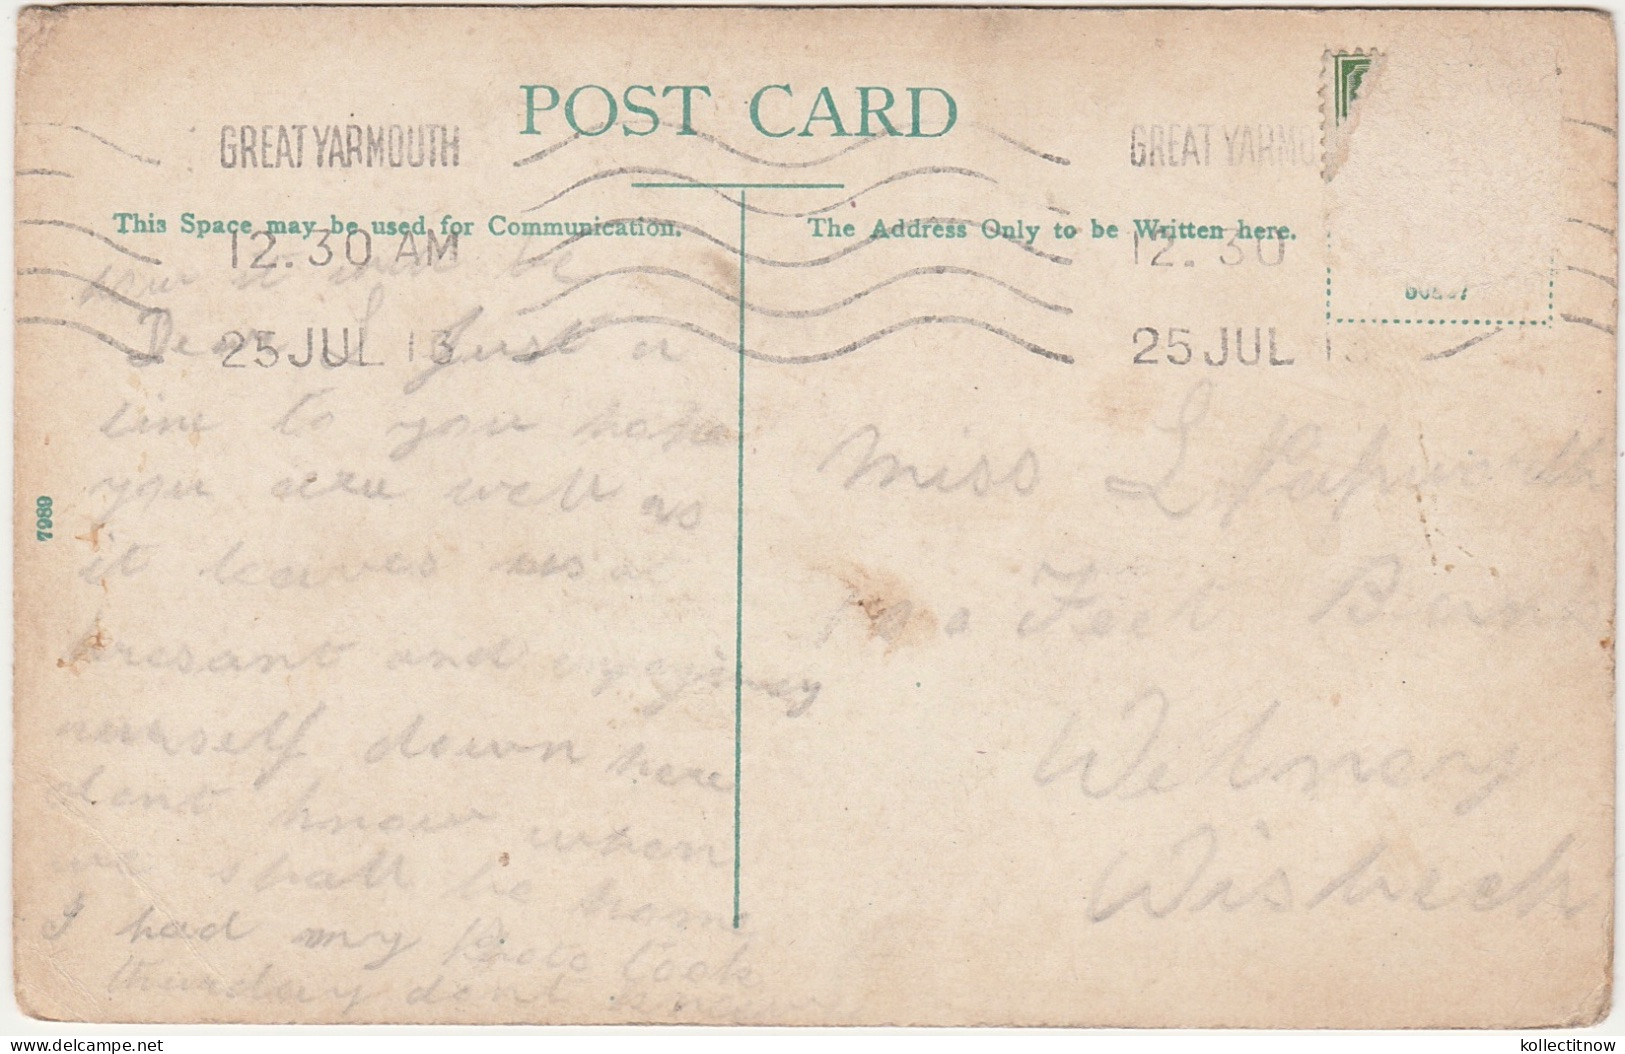 POST CARD
GREAT YARMOUTH
GREAT YARMO
This Space may be used for Communication.
The Address Only to be Written here.
12.30 AM
12.30
25 JUL 13
25 JUL 13
how it will be
Dear L Just a
line to you hope
you are well as
it leaves us at
presant and injoyiney
ourself down here
dont know when
we shall be home
I had my Photo took
thursday dont know
Miss L Papworth
Feet
Welney
Wisbech
7989
kollectitnow